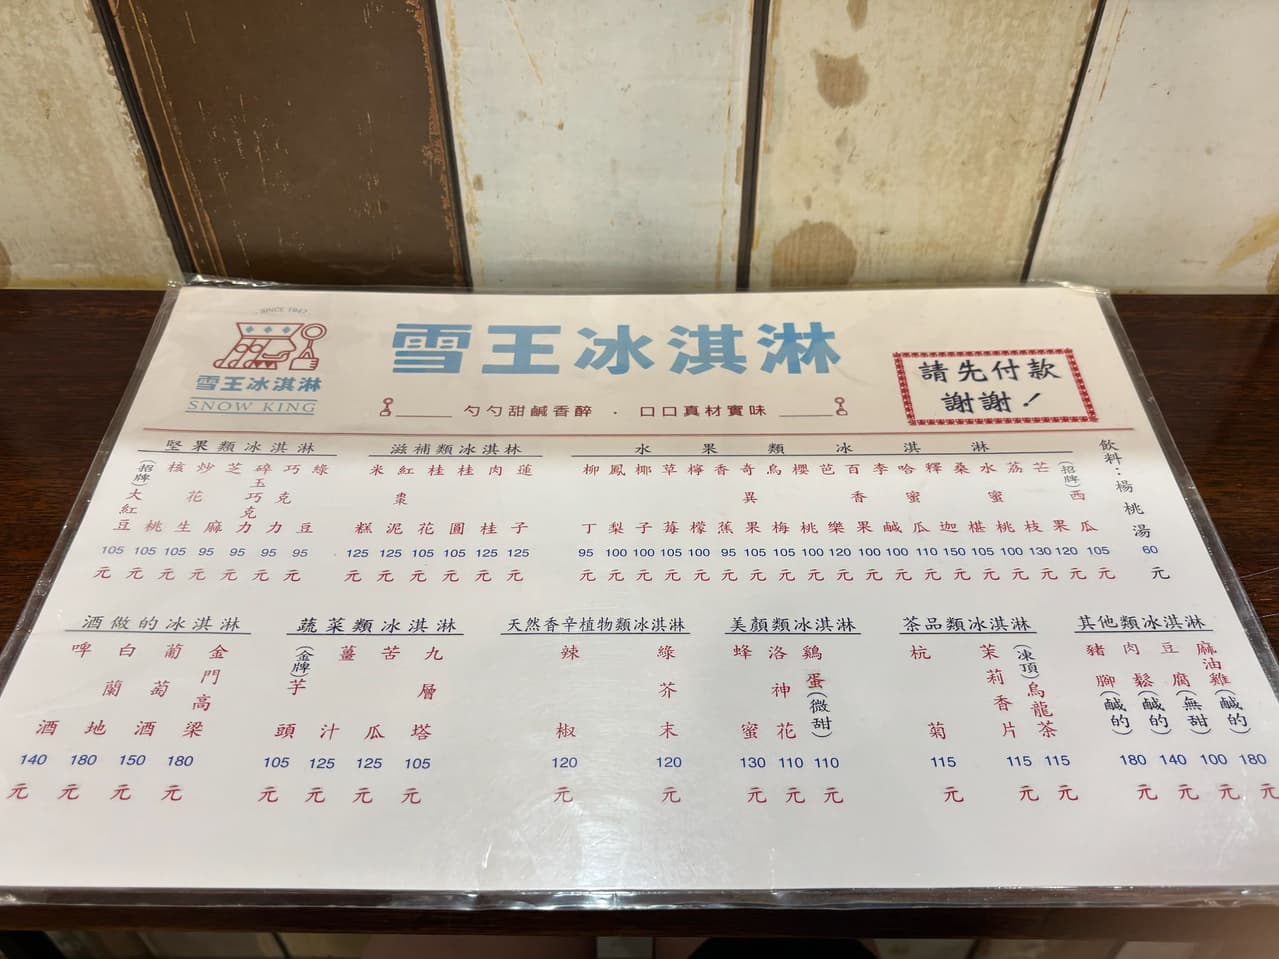 SINCE 1947
雪王冰淇淋
SNOW KING
雪王冰淇淋
勺勺甜鹹香醉 · 口口真材實味
請先付款
謝謝！
堅果類冰淇淋
(招牌)大紅豆 105元
核桃 105元
炒花生 105元
芝麻 95元
碎玉巧克力 95元
巧克力 95元
綠豆 95元
滋補類冰淇林
米糕 125元
紅棗泥 125元
桂花 105元
桂圓 105元
肉桂 125元
蓮子 125元
水果類冰淇淋
柳丁 95元
鳳梨 100元
椰子 100元
草莓 105元
檸檬 100元
香蕉 95元
奇異果 105元
烏梅 105元
櫻桃 100元
芭樂 120元
百香果 100元
李鹹 100元
哈蜜瓜 110元
釋迦 150元
桑椹 105元
水蜜桃 100元
荔枝 130元
芒果 120元
(招牌)西瓜 105元
飲料：楊桃湯 60元
酒做的冰淇淋
啤酒 140元
白蘭地 180元
葡萄酒 150元
金門高梁 180元
蔬菜類冰淇淋
(金牌)芋頭 105元
薑汁 125元
苦瓜 125元
九層塔 105元
天然香辛植物類冰淇淋
辣椒 120元
綠芥末 120元
美顏類冰淇淋
蜂蜜 130元
洛神花 110元
鷄蛋(微甜) 110元
茶品類冰淇淋
杭菊 115元
茉莉香片 115元
(凍頂)烏龍茶 115元
其他類冰淇淋
豬腳(鹹的) 180元
肉鬆(鹹的) 140元
豆腐(無甜) 100元
麻油雞(鹹的) 180元